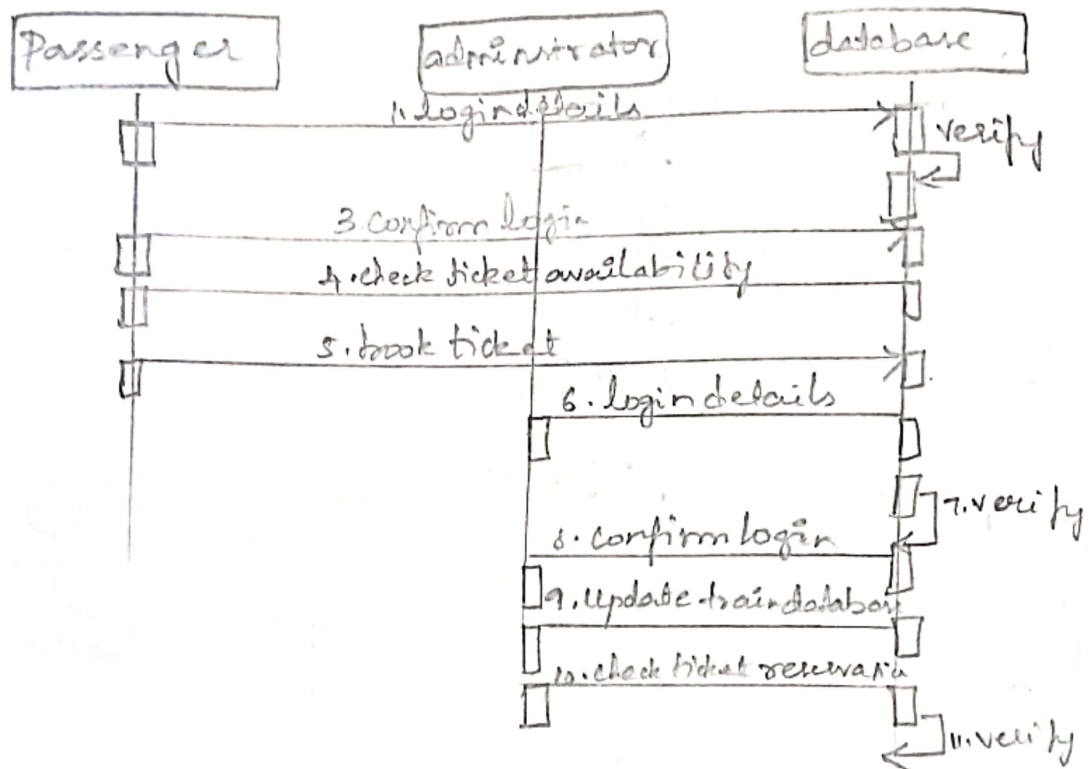 Passenger
adminstrator
database
1. login details
verify
3 confirm login
4. check ticket availability
5. book ticket
6. login details
7. verify
8. confirm login
9. update train databas
10. check ticket reservatio
11. verify